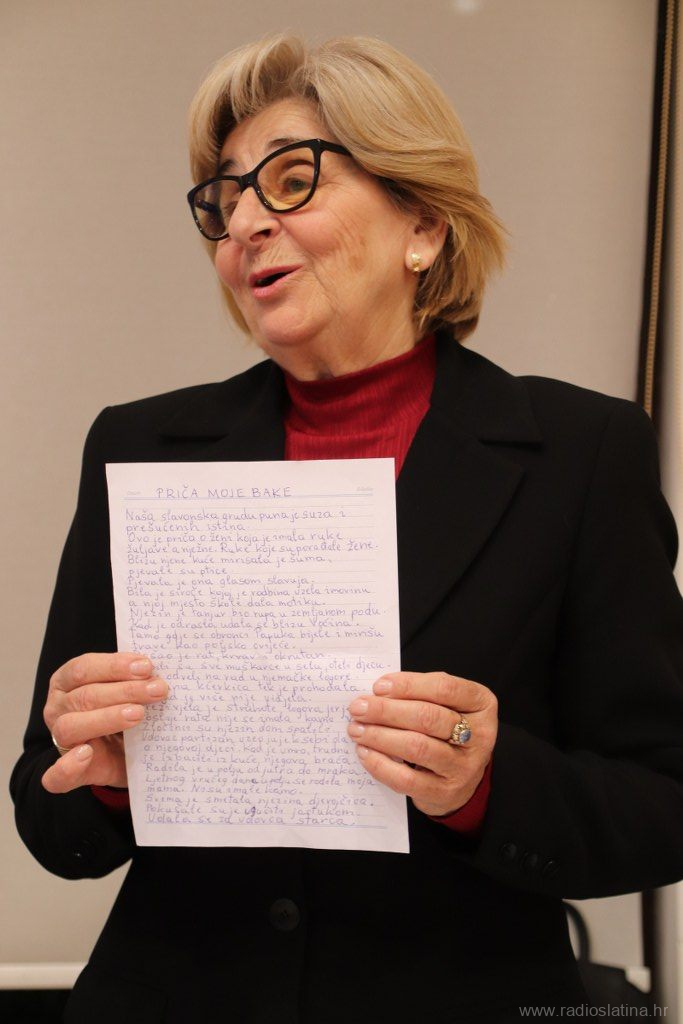 PRIČA MOJE BAKE
Naša slavonska gruda puna je suza i
prešućenih istina.
Ovo je priča o ženi koja je imala ruke
žuljave a nježne. Ruke koje su porađale žene.
Blizu njene kuće mirisala je šuma,
pjevale su ptice.
Pjevala je ona glasom slavuja.
Bila je siroče kojoj je rodbina uzela imovinu
a njoj mjesto škole dala motiku.
Njezin je tanjur bio rupa u zemljanom podu.
Kad je odrasla, udala se blizu Voćina.
Tamo gdje se obronci Papuka bijele i mirišu
trave kao poljsko cvijeće.
Došao je rat, krvav i okrutan.
su sve muškarce u selu, oteli djecu.
odveli na rad u njemačke logore.
kćerkica tek je prohodala.
je više nije vidjela.
je strahote logora jer je
Poslije rata nije se imala kamo
Zločinci su njezin dom spalili.
Vdovac partizan uzeo ju je k sebi da
o njegovoj djeci. Kad je umro, trudnu
je izbacile iz kuće, njegova braća.
Radila je u polju od jutra do mraka.
Ljetnog vrućeg dana u polju se rodila moja
mama. Nisu imale kamo.
Svima je smetala njezina djevojčica.
Pokušale su je ugušiti jastukom.
Udala se za vdovca starca.
www.radioslatina.hr